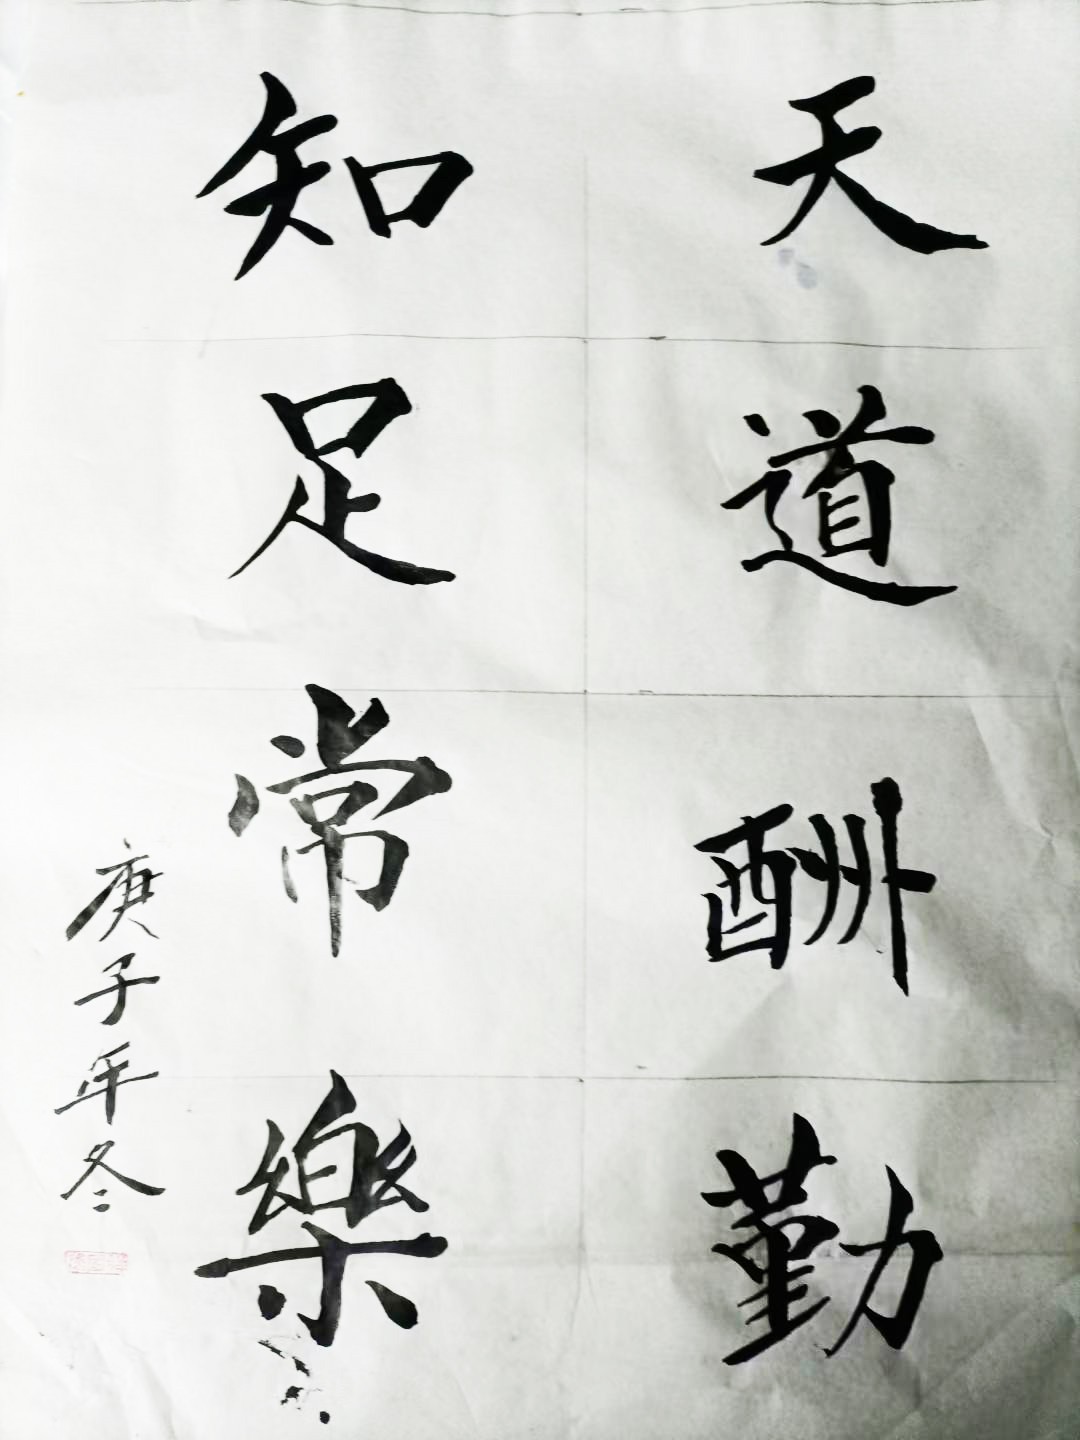 天道酬勤
知足常樂
庚子年冬